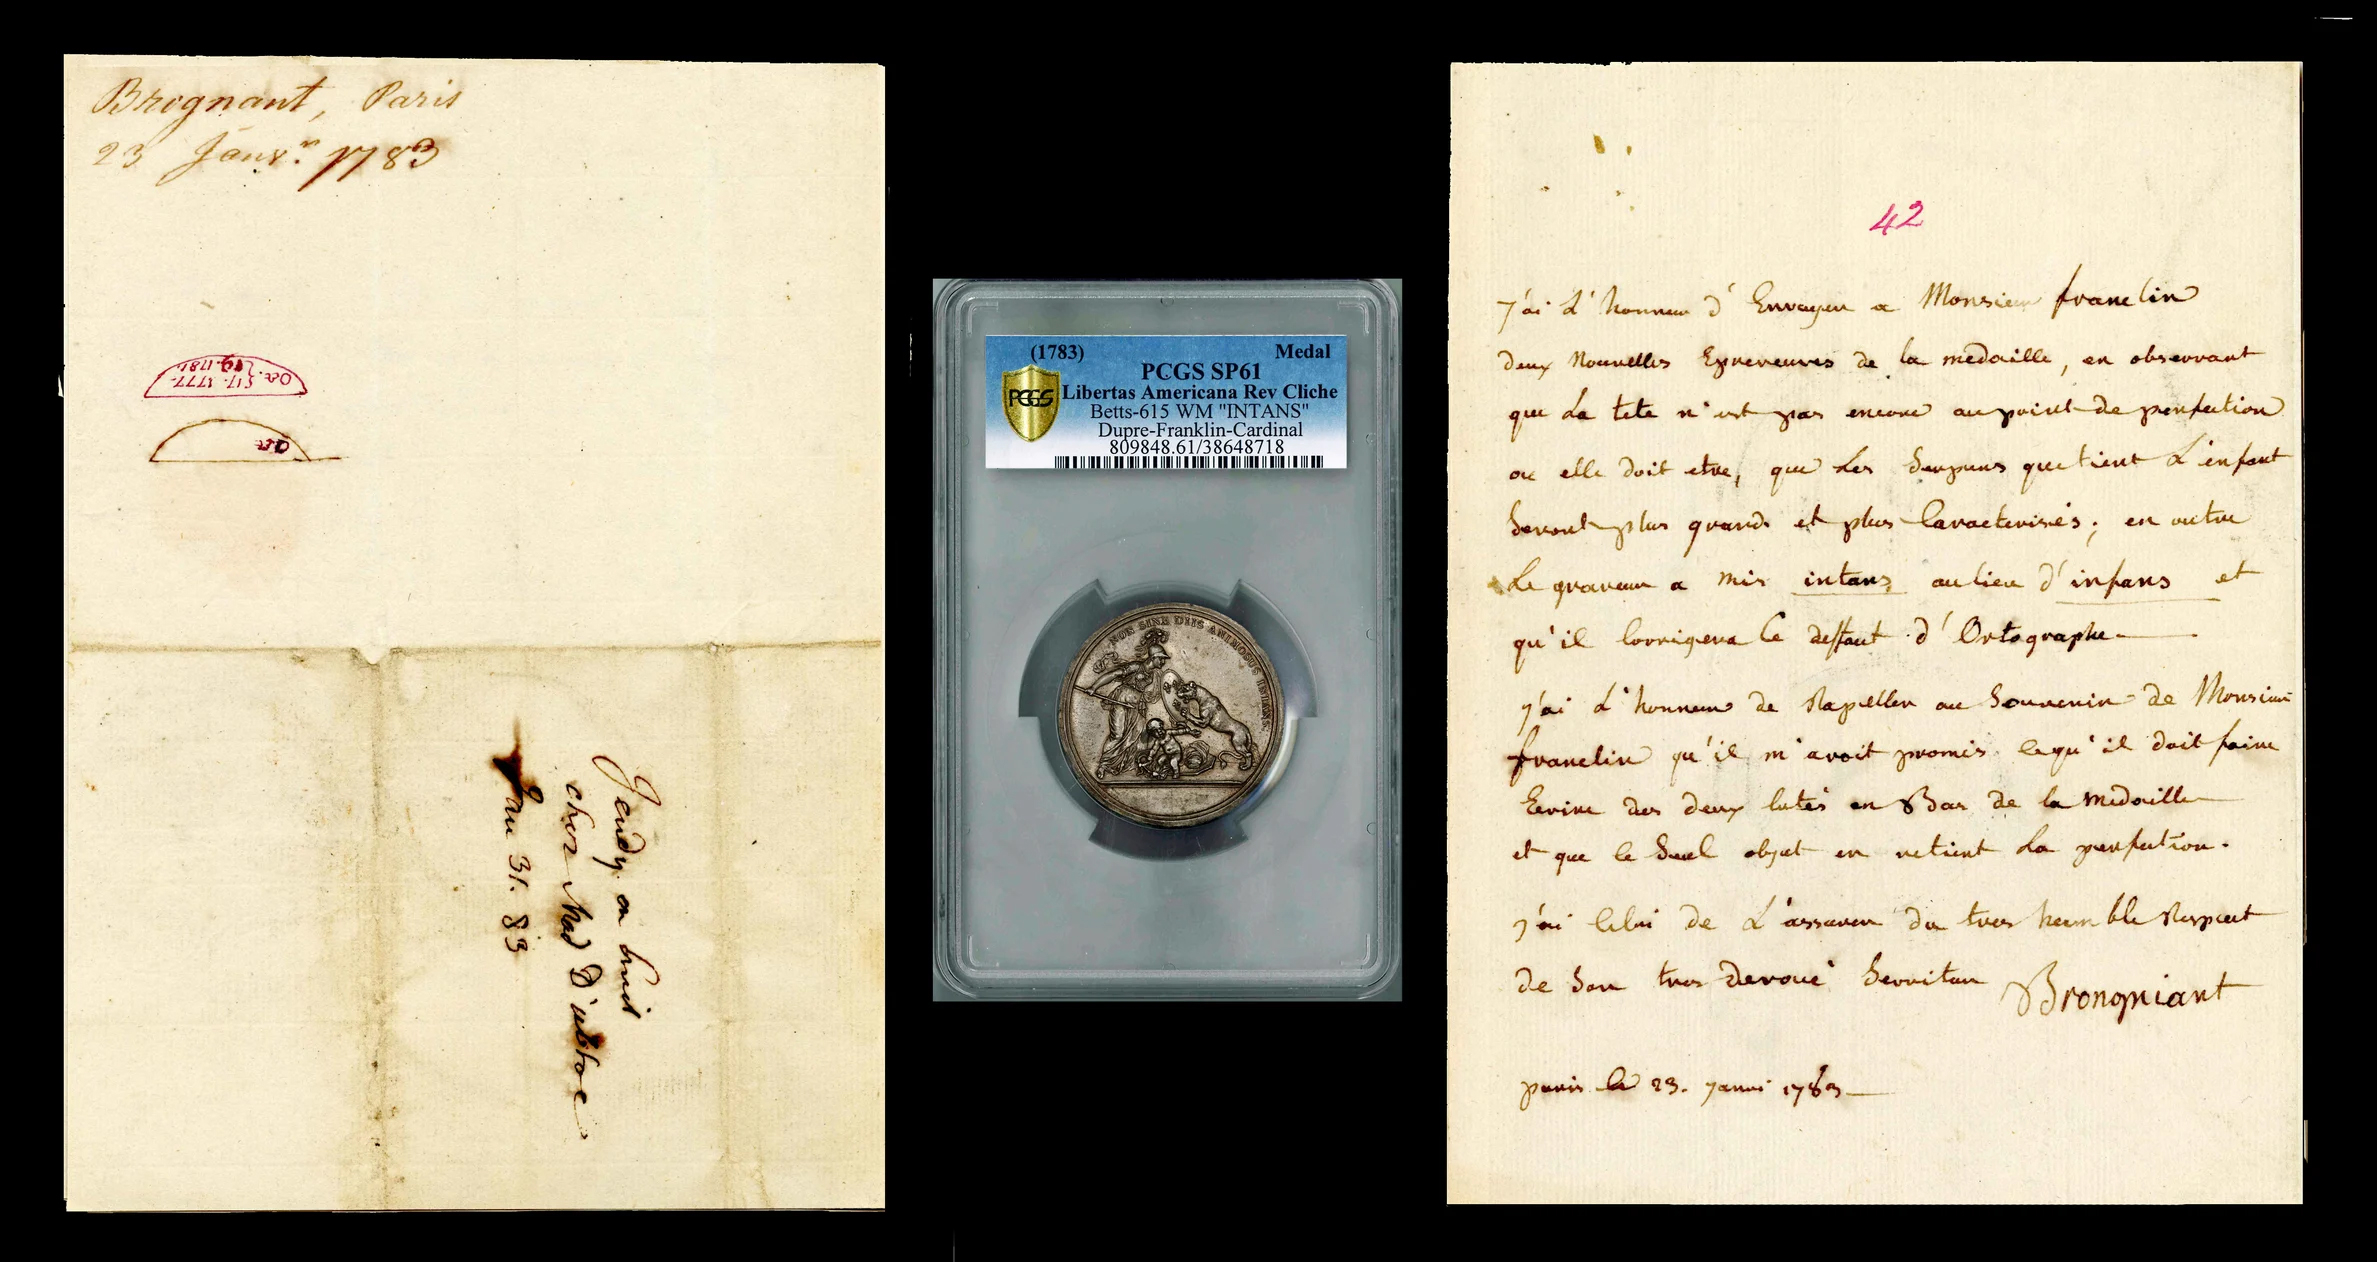 Brognant, Paris
23 Janv.r 1783
Oct. 17. 1777.
Oct
Jeudy en huit
chez Mad D'
Jan 31. 83
(1783) Medal
PCGS SP61
PCGS
Libertas Americana Rev Cliche
Betts-615 WM "INTANS"
Dupre-Franklin-Cardinal
809848.61/38648718
NON SINE DIIS ANIMOSUS INTANS
42
J'ai L'honneur d'Envoyer a Monsieur franclin
deux Nouvelles Epreveuves de la medaille, en observant
que La tete n'est pas encore au point de perfection
ou elle doit etre, que Les Serpens que tient L'enfant
Seront plus grands et plus Caracterisés; en outre
Le graveur a mis intans au lieu d'infans et
qu'il Corrigera Ce deffaut d'Ortographe
j'ai L'honneur de Rapeller au Souvenir de Monsieur
franclin qu'il m'avoit promis ce qu'il doit faire
Ecrire des deux Cotés en Bas de la medaille
et que ce Seul objet en retient La perfection.
j'ai Celui de L'assurer du tres humble Respect
de Son tres devoué Serviteur Brongniart
paris le 23. Janvi 1783